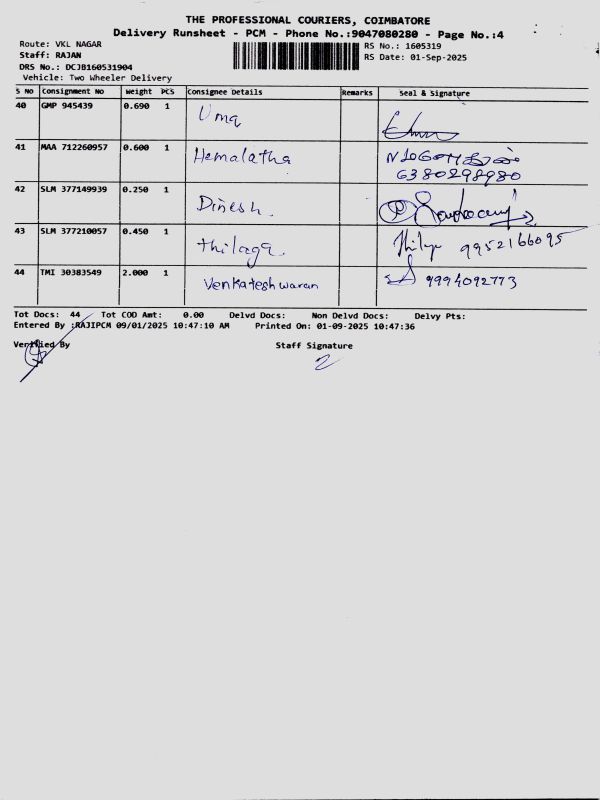 THE PROFESSIONAL COURIERS, COIMBATORE
Delivery Runsheet - PCM - Phone No.:9047080280 - Page No.:4
Route: VKL NAGAR RS No.: 1605319
Staff: RAJAN RS Date: 01-Sep-2025
DRS No.: DCJB160531904
Vehicle: Two Wheeler Delivery
S No Consignment No Weight PCS Consignee Details Remarks Seal & Signature
40 GMP 945439 0.690 1 Uma
41 MAA 712260957 0.600 1 Hemalatha
6380298980
42 SLM 377149939 0.250 1 Dinesh.
43 SLM 377210057 0.450 1 thilaga. 9952166095
44 TMI 30383549 2.000 1 Venkateshwaran 9994092773
Tot Docs: 44 Tot COD Amt: 0.00 Delvd Docs: Non Delvd Docs: Delvy Pts:
Entered By :RAJIPCM 09/01/2025 10:47:10 AM Printed On: 01-09-2025 10:47:36
Verified By Staff Signature